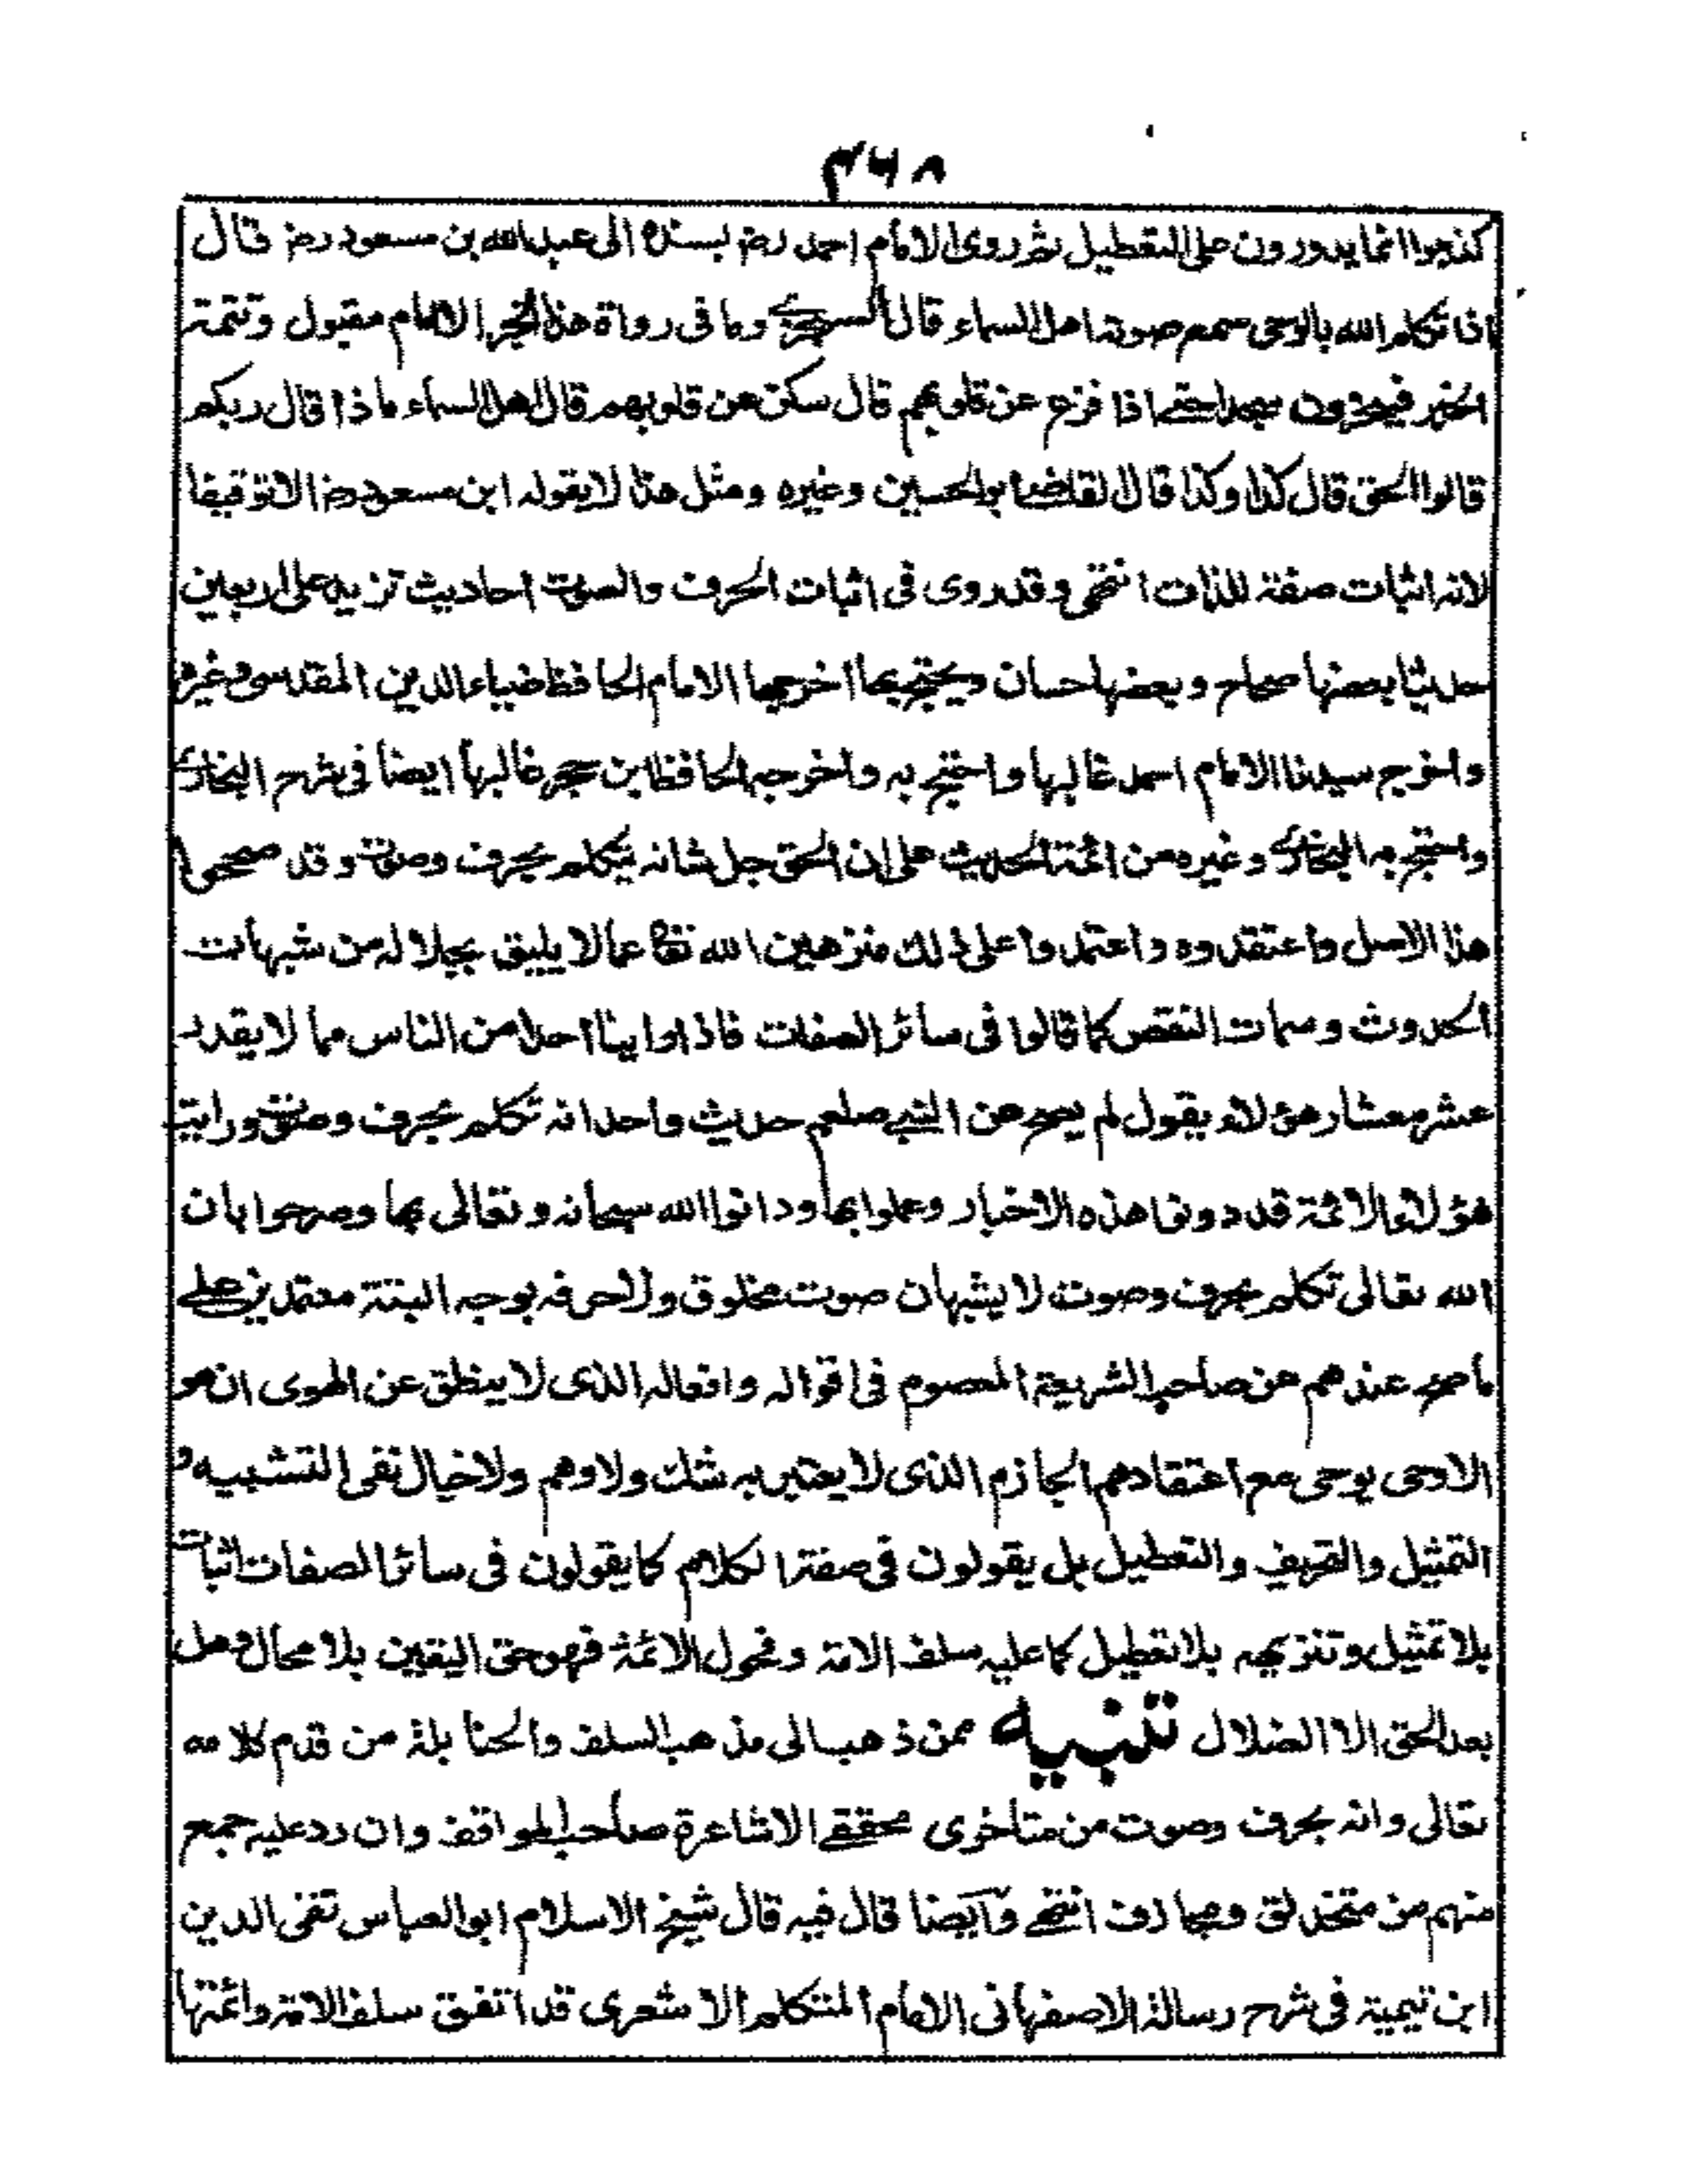 ٣٦٨
كذبوا انما يدورون على التعطيل ثم روى الامام احمد رضہ بسنده الى عبد الله بن مسعود رضہ قال
اذا تكلم الله بالوحى سمع صوته اهل السماء قال السجزي وما فى رواة هذا الخبر الا امام مقبول وتتمة
الخبر فيخرون سجدا حتى اذا فزع عن قلوبهم قال سكن عن قلوبهم قال اهل السماء ماذا قال ربكم
قالوا الحق قال كذا وكذا قال القاضى ابو الحسين وغيره ومثل هذا لا يقوله ابن مسعود رضہ الا توقيفا
لانه اثبات صفة للذات انتهى وقد روى فى اثبات الحرف والصوت احاديث تزيد على اربعين
حديثا بعضها صحاح وبعضها حسان ويحتج بها اخرجها الامام الحافظ ضياء الدين المقدسى وغيره
واخرج سيدنا الامام احمد غالبها واحتج به واخرجه الحافظ ابن حجر غالبها ايضا فى شرح البخارى
واحتج به البخارى وغيره من ائمة الحديث على ان الحق جل شانه يتكلم بحرف وصوت وقد صححوا
هذا الاصل واعتقدوه واعتمدوا على ذلك منزهين الله تعالى عما لا يليق بجلاله من شبهات
الحدوث وسمات النقص كما قالوا فى سائر الصفات فاذا راينا احدا من الناس مما لا يقدر
عشر معشار هؤلاء يقول لم يصح عن النبي صلعم حديث واحد انه تكلم بحرف وصوت ورايت
هؤلاء الائمة قد دونوا هذه الاخبار وعملوا بها ودانوا الله سبحانه وتعالى بها وصرحوا بان
الله تعالى تكلم بحرف وصوت لا يشبهان صوت مخلوق ولا حرفه بوجه البتة معتمدين على
ما صح عندهم عن صاحب الشريعة المعصوم فى اقواله وافعاله الذى لا ينطق عن الهوى ان هو
الا وحى يوحى مع اعتقادهم الجازم الذى لا يعتريه شك ولا وهم ولا خيال نفى التشبيه و
التمثيل والتحريف والتعطيل بل يقولون فى صفة الكلام كما يقولون فى سائر الصفات اثبات
بلا تمثيل وتنزيه بلا تعطيل كما عليه سلف الامة وفحول الائمة فهو حق اليقين بلا محال وهل
بعد الحق الا الضلال تنبيه ممن ذهب الى مذهب السلف والحنابلة من قدم كلامه
تعالى وانه بحرف وصوت من متاخرى محققے الاشاعرة صاحب المواقف وان رد عليه جمع
منهم من متحذلق ومجازف انتهے وايضا قال فيه قال شيخ الاسلام ابو العباس تقى الدين
ابن تيمية فى شرح رسالة الاصفهانى الامام المتكلم الاشعرى قد اتفق سلف الامة وائمتها